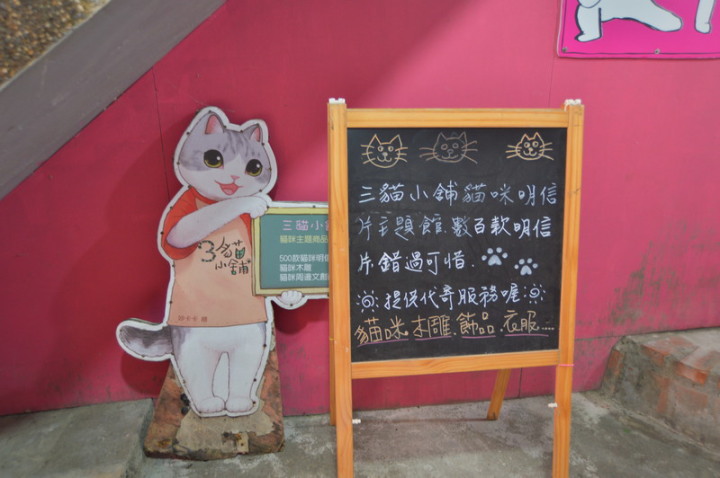 三貓小鋪
貓咪主題商品
500款貓咪明信
貓咪木雕
貓咪周邊文創
3貓
小舖
三貓小舖貓咪明信
片主題館.數百款明信
片.錯過可惜.
提供代寄服務喔
貓咪.木雕.飾品.衣服....